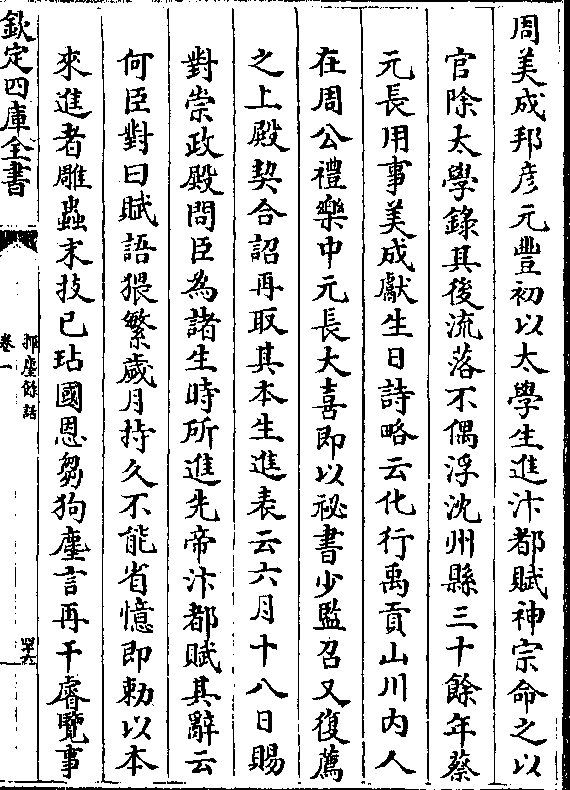 周美成邦彦元豐初以太學生進汴都賦神宗命之以
官除太學錄其後流落不偶浮沈州縣三十餘年蔡
元長用事美成獻生日詩略云化行禹貢山川内人
在周公禮樂中元長大喜即以祕書少監召又復薦
之上殿契合詔再取其本生進表云六月十八日賜
對崇政殿問臣為諸生時所進先帝汴都賦其辭云
何臣對曰賦語猥繁歲月持久不能省憶即勅以本
來進者雕蟲末技已玷國恩芻狗塵言再干睿覽事
欽定四庫全書
揮麈餘話
卷一